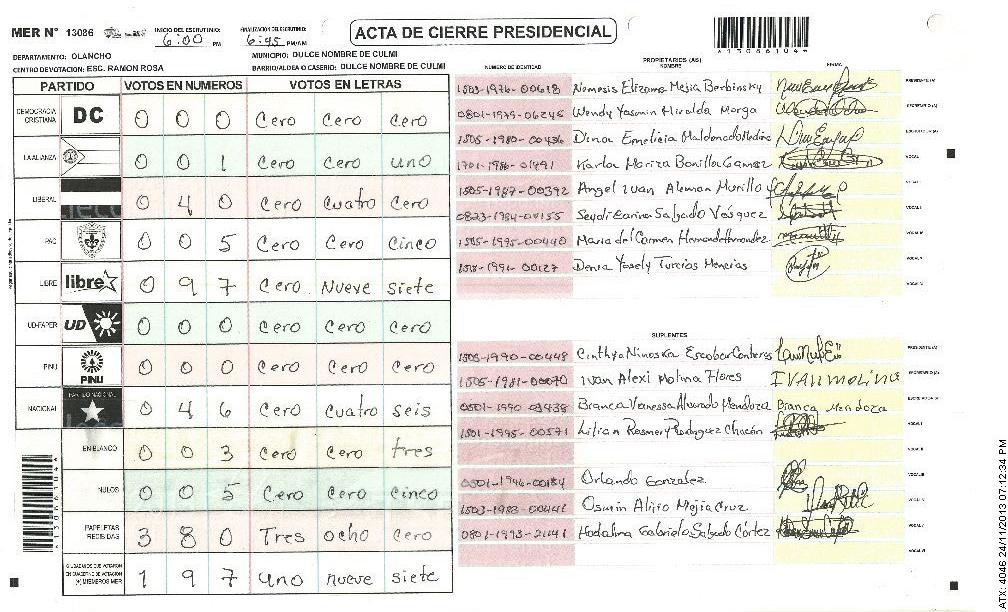 MER N° 13086
INICIO DEL ESCRUTINIO: 6:00 PM
FINALIZACION DEL ESCRUTINIO: 6:45 PM/AM
ACTA DE CIERRE PRESIDENCIAL
*13086104*
DEPARTAMENTO: OLANCHO
MUNICIPIO: DULCE NOMBRE DE CULMI
CENTRO DE VOTACION: ESC. RAMON ROSA
BARRIO/ALDEA O CASERIO: DULCE NOMBRE DE CULMI
PARTIDO VOTOS EN NUMEROS VOTOS EN LETRAS
DEMOCRACIA CRISTIANA DC 0 0 0 Cero Cero Cero
LA ALIANZA 0 0 1 Cero Cero uno
LIBERAL 0 4 0 Cero Cuatro Cero
PAC 0 0 5 Cero Cero Cinco
LIBRE libre 0 9 7 Cero Nueve siete
UD-FAPER UD 0 0 0 Cero Cero Cero
PINU PINU 0 0 0 Cero Cero Cero
NACIONAL PARTIDO NACIONAL 0 4 6 Cero Cuatro seis
EN BLANCO 0 0 3 Cero Cero tres
NULOS 0 0 5 Cero Cero Cinco
PAPELETAS RECIBIDAS 3 8 0 Tres ocho Cero
CIUDADANOS QUE VOTARON EN CUADERNO DE VOTACION (+) MIEMBROS MER 1 9 7 uno nueve siete
*13086104*
PROPIETARIOS (AS)
NUMERO DE IDENTIDAD NOMBRE FIRMA
1503-1976-00618 Nemesis Elizama Mejia Berbinsky
0801-1979-06245 Wendy Yasmin Miralda Morga
1505-1980-00436 Dinoa Emelicia Maldonado Medina
1701-1986-01491 Karla Mariza Bonilla Gamez
1505-1987-00392 Angel Ivan Aleman Murillo
0823-1984-00155 Seydi Carina Salgado Vásquez
1505-1995-00440 Maria del Carmen Hernande Hernandez
1518-1991-00127 Denia Yosely Turcios Mencias
SUPLENTES
1505-1990-00448 Cinthya Ninoska Escobar Conteras
1505-1981-00070 Ivan Alexi Molina Flores IVAN MOLINA
0501-1990-03438 Branca Vanessa Alvarado Mendoza Branca Mendoza
1501-1995-00571 Lilian Rosmery Rodriguez Chacón
0501-1946-00184 Orlando Gonzalez
1503-1983-00441 Osmin Alijro Mejia Cruz
0801-1993-21141 Hadalina Gabriela Salgado Córtez
ATX: 4046 24/11/2013 07:12:34 PM